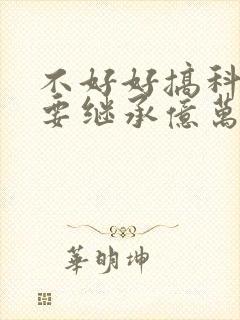 不好好搞科
要继承億萬
華明坤